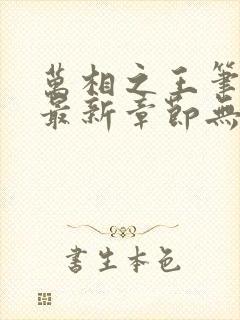 萬相之王筆
最新章節無
書生本色